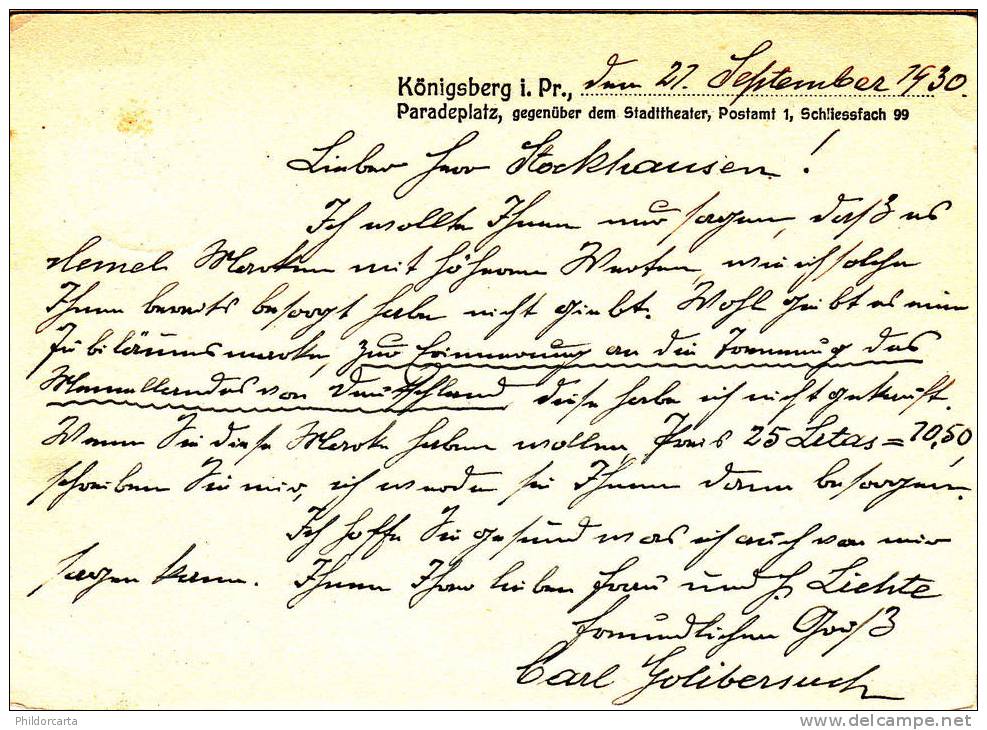 Königsberg i. Pr., den 21. September 1930.
Paradeplatz, gegenüber dem Stadttheater, Postamt 1, Schliessfach 99
Lieber Herr Stockhausen!
Ich wollte Ihnen nur sagen, daß es
Memel Marken mit höheren Werten, wie ich solche
Ihnen bereits besorgt habe nicht giebt. Wohl giebt es eine
Jubiläumsmarke, zur Erinnerung an die Trennung des
Memellandes von Deutschland, diese habe ich nicht gekauft.
Wenn Sie diese Marke haben wollen, Preis 25 Litas = 10,50,
schreiben Sie mir, ich werde sie Ihnen dann besorgen.
Ich hoffe Sie gesund was ich auch von mir
sagen kann. Ihnen Ihrer lieben Frau und H. Liehte
freundlichen Gruß
Carl Golibersuch
Phildorcarta
www.delcampe.net